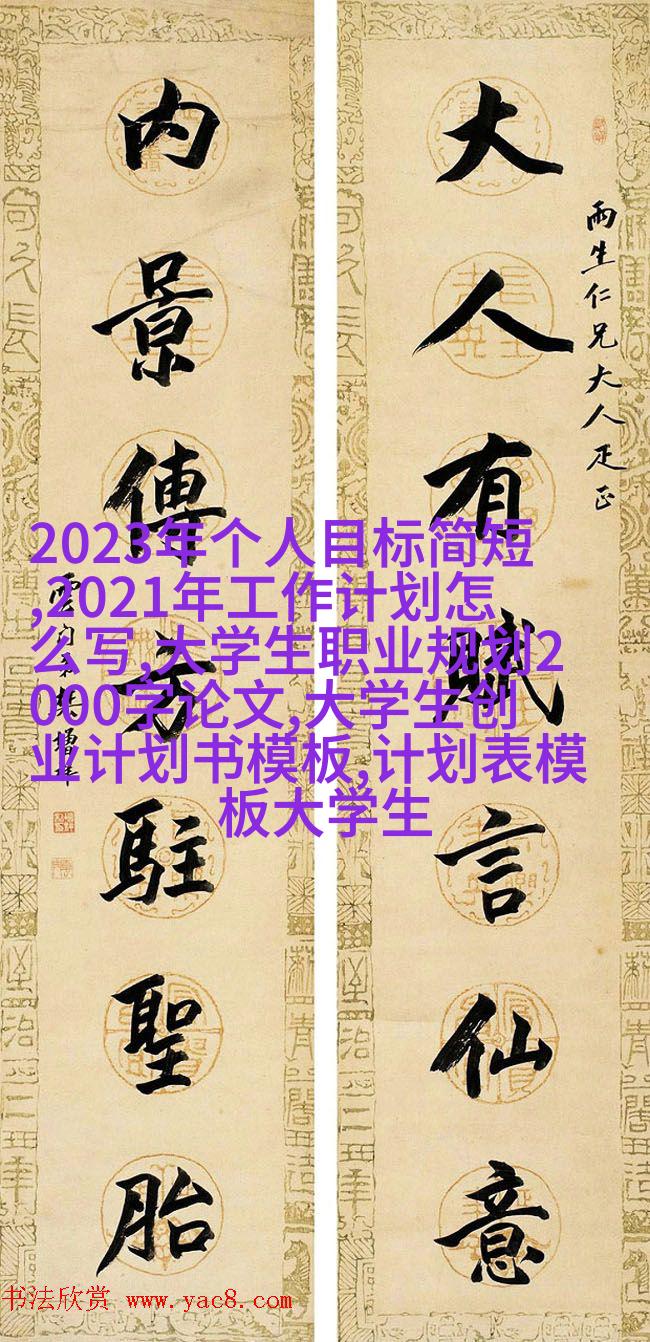 大人有賦言仙意
雨生仁兄大人疋正
内景傳芳駐聖胎
雲門弟樊增祥
2023年个人目标简短
,2021年工作计划怎
么写,大学生职业规划2
000字论文,大学生创
业计划书模板,计划表模
板大学生
书法欣赏 www.yac8.com